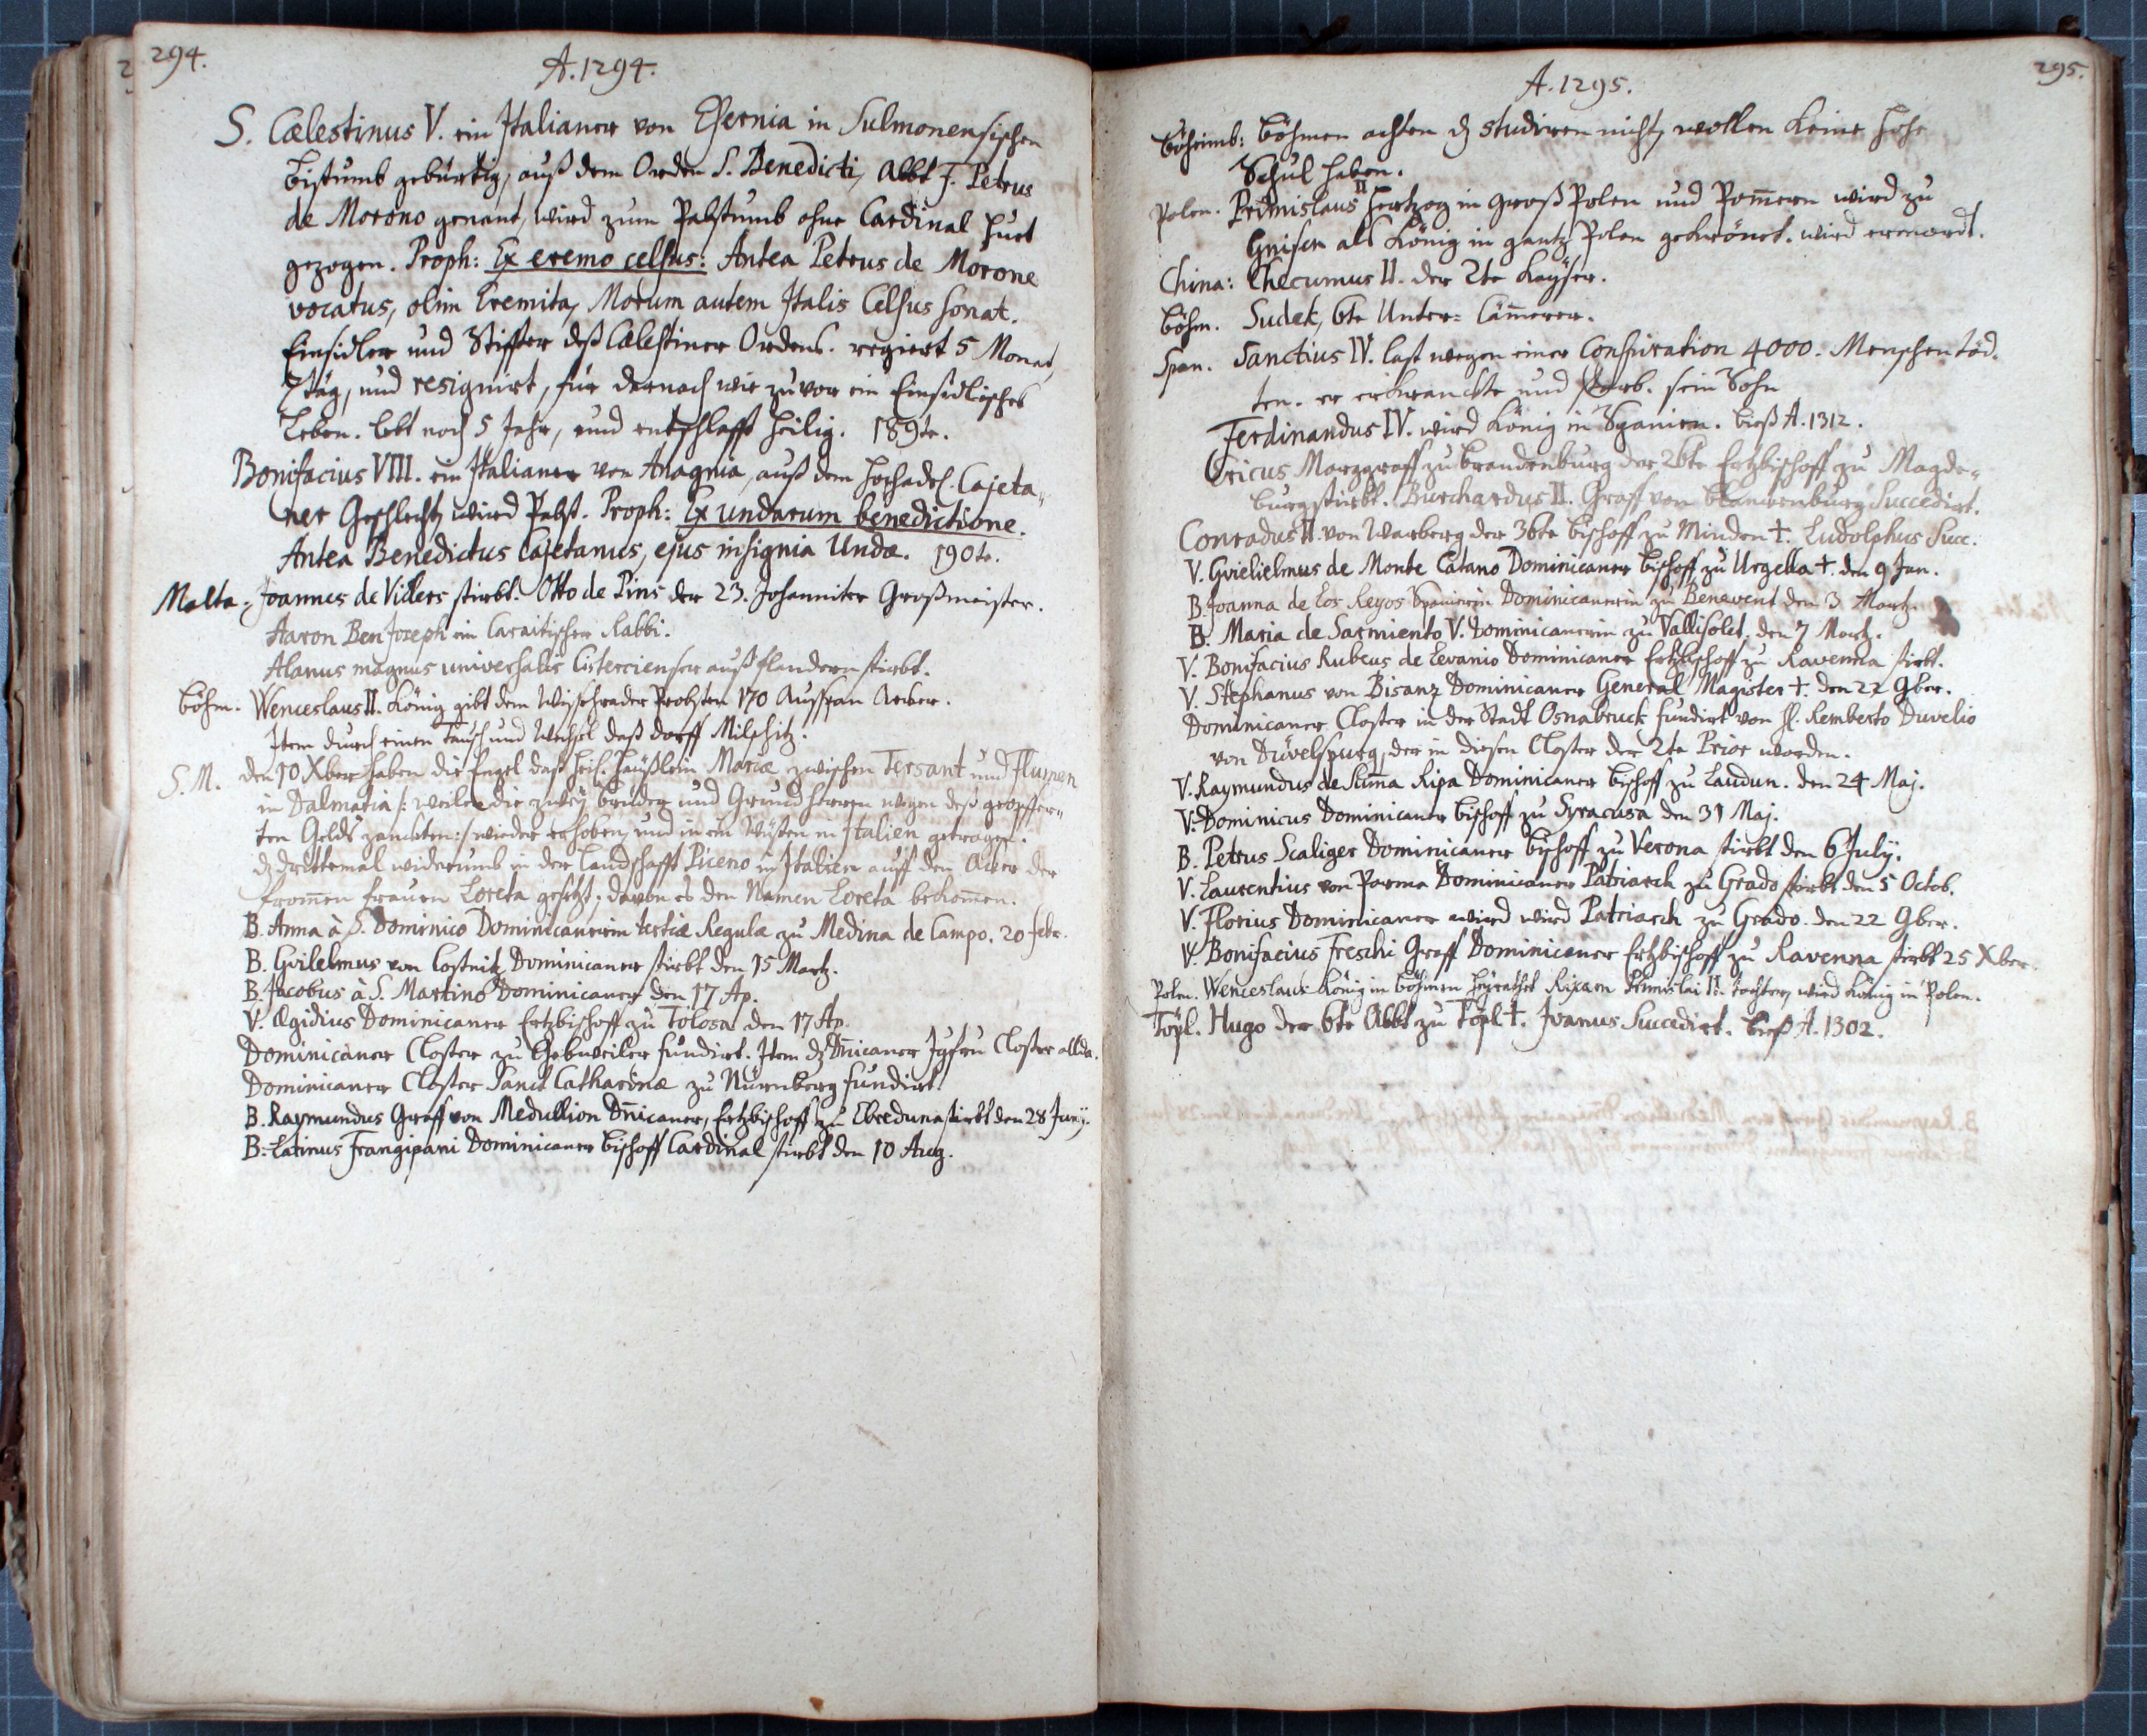 294.
A. 1294.
S. Cælestinus V. ein Italianer von Esernia in Sulmonensischen
Bistumb gebürtig, auß dem Orden S. Benedicti, Abbt F. Petrus
de Morono genant, wird zum Pabstumb ohne Cardinal Huet
gezogen. Proph: Ex eremo celsus: Antea Petrus de Morone
vocatus, olim Eremita, Morum autem Italis Celsus sonat.
Einsidler und Stiffter deß Cælestiner Ordens. regiert 5 Monat,
7 täg, und resignirt, für darnach wie zuvor ein Einsidlisches
Leben. lebt noch 5 Jahr, und entschlafft heilig. 189te.
Bonifacius VIII. ein Italianer von Anagnia, auß dem hochadel. Cajeta„
ner Geschlecht, wird Pabst. Proph: Ex undarum benedictione.
Antea Benedictus Cajetanus, ejus insignia Undæ. 190te.
Malta: Joannes de Villers stirbt. Otto de Pins der 23. Johanniter Großmeister.
Aaron Ben Joseph ein Caraitischer Rabbi.
Alanus magnus universalis Cistercienser auß flandern stirbt.
Böhm. Wenceslaus II. König gibt dem Wisschrader Probsten 170 Außspan Acker.
Item durch einen tausch und Wechsel daß dorff Milschitz.
S. M. den 10 Xber haben die Engel daß heil. Häußlein Mariæ zwischen Tersant und Flumen
in Dalmatia /: weilen die zwey brüder und Grundherren wegen deß geopffer„
ten Gelds zanckten :/ wieder erhoben, und in ein Wüsten in Italien getragen.
dz drittemal widerumb in der Landschafft Piceno in Italien auff den Acker der
frommen frauen Loreta gesetzt, davon es den Namen Loreta bekommen.
B. Anna à S. Dominico Dominicanerin tertiæ Regulæ zu Medina de Campo. 20 febr.
B. Gvilelmus von Costnitz Dominicaner stirbt den 15 Martz.
B. Jacobus à S. Martino Dominicaner den 17 Ap.
V. Ægidius Dominicaner Ertzbischoff zu Tolosa den 17 Ap.
Dominicaner Closter zu Gebweiler fundirt. Item dz Dnicaner Jgfru Closter allda.
Dominicaner Closter Sanct Catharinæ zu Nürnberg fundirt.
B. Raymundus Graff von Medullion Dnicaner, Ertzbischoff zu Ebreduna stirbt den 28 Junij.
B. Latinus Frangipani Dominicaner bischoff Cardinal stirbt den 10 Aug.
295.
A. 1295.
Böheimb: Böhmen achten dz studiren nicht, wollen keine hohe
Schul haben.
Polen. Primislaus II Hertzog in groß Polen und Pommern wird zu
Gnisen als König in gantz Polen gekrönet. wird ermordt.
China: Checumus II. der 2te Kayser.
Böhm. Sudek, 6te Unter-Cämmerer.
Span. Sanctius IV. last wegen einer Conspiration 4000. Menschen töd„
ten. er erkranckte und starb. sein Sohn
Ferdinandus IV. wird König in Spanien. biß A. 1312.
Ericus Marggraff zu Brandenburg der 26te Ertzbischoff zu Magde„
burg stirbt. Burchardus II. Graff von Blanckenburg Succedirt.
Conradus II. von Warberg der 36te bischoff zu Minden †. Ludolphus Succ.
V. Gvielielmus de Monte Catano Dominicaner bischoff zu Urgella †. den 9 Jan.
B. Joanna de Los Reyos Spanierin Dominicanerin zu Benevent den 3 Martz.
B. Maria de Sarmiento V. Dominicanerin zu Vallisolet. den 7 Martz.
V. Bonifacius Rubeus de Levanio Dominicaner Ertzbischoff zu Ravenna stirbt.
V. Stephanus von Bisanz Dominicaner General Magister †. den 22 9ber.
Dominicaner Closter in der Stadt Osnabruck fundirt von H. Remberto Duvelio
von Düvelspurg, der in diesen Closter der 2te Prior worden.
V. Raymundus de Suma Ripa Dominicaner bischoff zu Laudun. den 24 Maj.
V. Dominicus Dominicaner bischoff zu Syracusa den 31 Maj.
B. Petrus Scaliger Dominicaner bischoff zu Verona stirbt den 6 July.
V. Laurentius von Parma Dominicaner Patriarch zu Grado stirbt den 5 Octob.
V. Florius Dominicaner wird wird Patriarch zu Grado. den 22 9ber.
V. Bonifacius Freschi Graff Dominicaner Ertzbischoff zu Ravenna stirbt 25 Xber.
Polen. Wenceslaus König in Böhmen heyrathet Rixam Primislai II. tochter, wird König in Polen.
Töpl. Hugo der 6te Abbt zu Töpl †. Ivanus Succedirt. biß A. 1302.